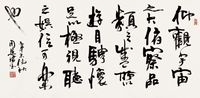 仰觀宇宙
之大俯察品
類之盛所以
遊目騁懷
足以極視聽
之娛信可樂
也